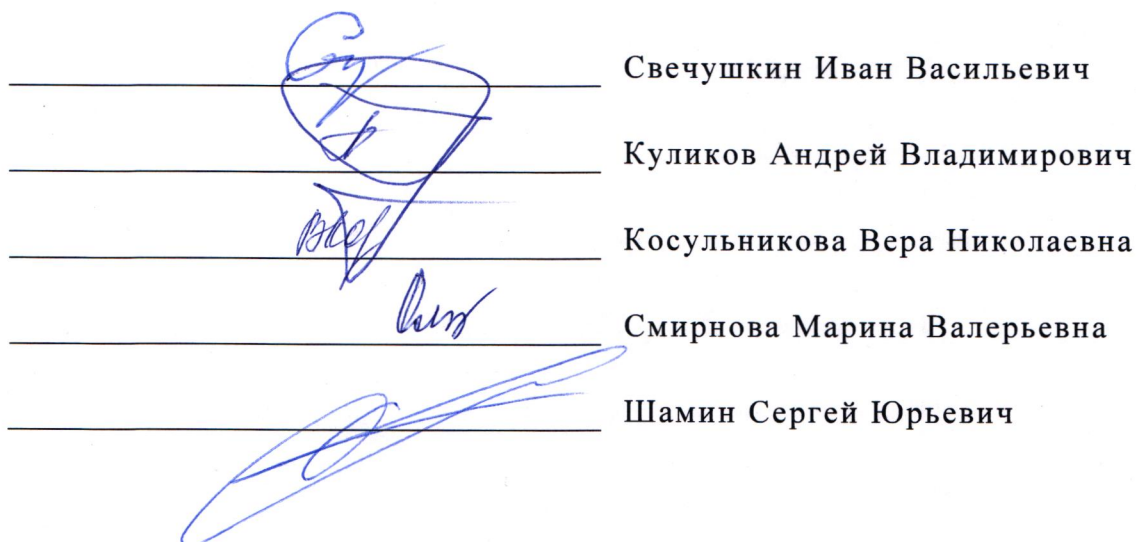 Свечушкин Иван Васильевич
Куликов Андрей Владимирович
Косульникова Вера Николаевна
Смирнова Марина Валерьевна
Шамин Сергей Юрьевич